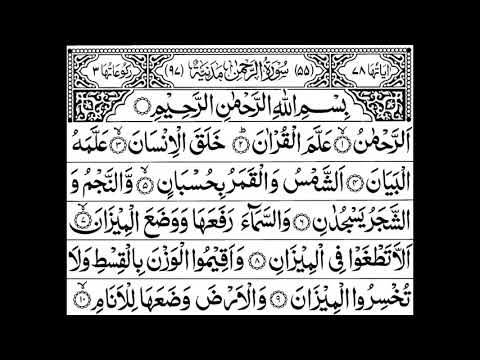 اٰیَاتُهَا ۷۸ (۵۵) سُوْرَةُ الرَّحْمٰنِ مَدَنِيَّةٌ (۹۷) رُكُوْعَاتُهَا ۳
بِسْمِ اللّٰهِ الرَّحْمٰنِ الرَّحِيْمِ
اَلرَّحْمٰنُ ۱ عَلَّمَ الْقُرْاٰنَ ۲ خَلَقَ الْاِنْسَانَ ۳ عَلَّمَهُ
الْبَيَانَ ۴ اَلشَّمْسُ وَالْقَمَرُ بِحُسْبَانٍ ۵ وَّالنَّجْمُ وَ
الشَّجَرُ يَسْجُدٰنِ ۶ وَالسَّمَآءَ رَفَعَهَا وَوَضَعَ الْمِيْزَانَ ۷
اَلَّا تَطْغَوْا فِى الْمِيْزَانِ ۸ وَاَقِيْمُوا الْوَزْنَ بِالْقِسْطِ وَلَا
تُخْسِرُوا الْمِيْزَانَ ۹ وَالْاَرْضَ وَضَعَهَا لِلْاَنَامِ ۱۰